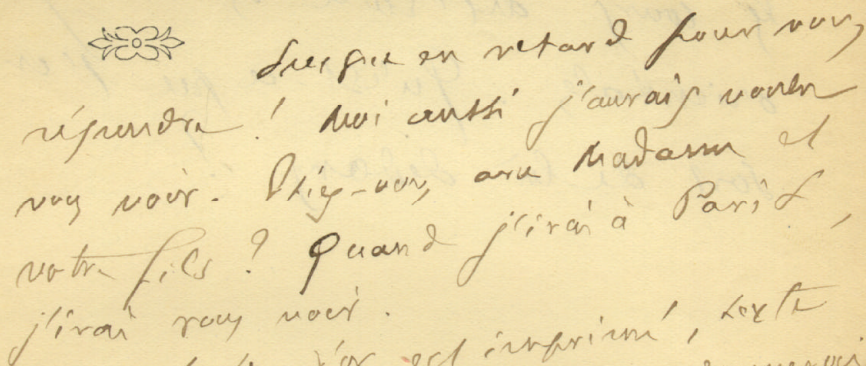 en retard pour vous
répondre ! Moi aussi j'aurais voulu
vous voir. Etiez-vous avec Madame et
votre fils ? Quand j'irai à Paris,
j'irai vous voir.
est imprimé, texte